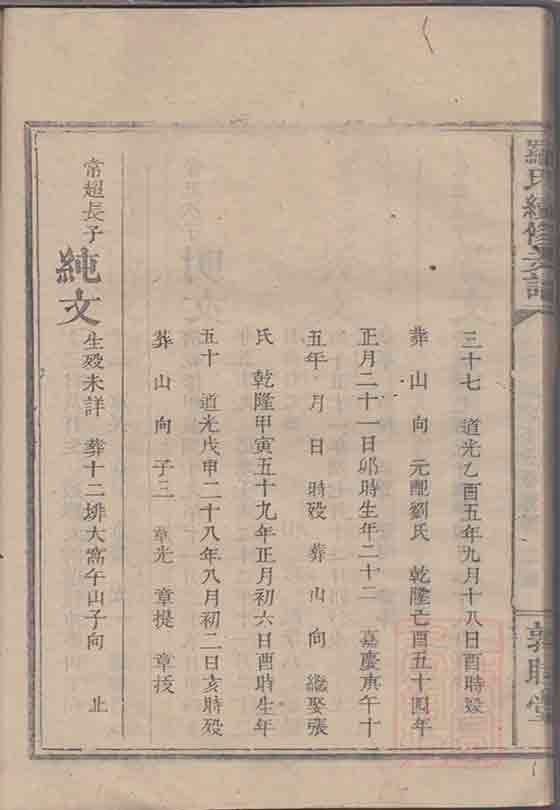 羅氏續修支譜
敦睦堂
三十七　道光乙酉五年九月十八日酉時殁
葬　山　向　元配劉氏　乾隆亡酉五十四年
正月二十一日卯時生年二十二　嘉慶庚午十
五年　月　日　時殁　葬　山　向　繼娶張
氏　乾隆甲寅五十九年正月初六日酉時生年
五十　道光戊申二十八年八月初二日亥時殁
葬　山　向　子三　章光　章提　章授
常超長子　純文　生殁未詳　葬十二排大窩午山子向　止